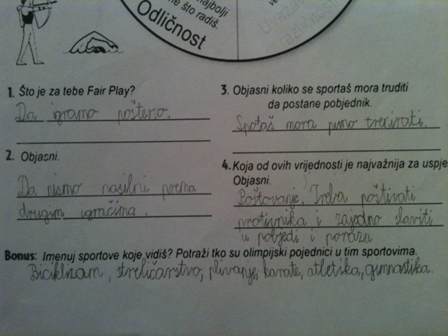 najbolji
što radiš.
Odličnost
1. Što je za tebe Fair Play?
Da igramo pošteno.
2. Objasni.
Da nismo nasilni prema
drugim igračima.
3. Objasni koliko se sportaš mora truditi
da postane pobjednik.
Spotaš mora puno trenirati.
4. Koja od ovih vrijednosti je najvažnija za uspje
Objasni.
Poštovanje. Treba poštivati
protivnika i zajedno slaviti
u pobjedi i porazu
Bonus: Imenuj sportove koje vidiš? Potraži tko su olimpijski pojednici u tim sportovima.
Biciklizam, streličarstvo, plivanje, karate, atletika, gimnastika.